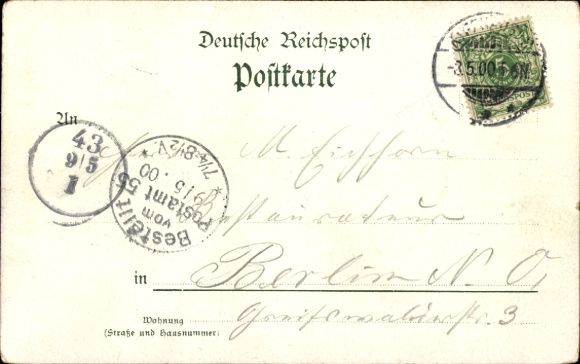 Deutsche Reichspost
Postkarte
-3.5.00
5
An
43
9/5
1
Bestellt
vom
Postamt 55
9/5.00
7¼-8½V.
M. Eichhorn
Restaurateur
in Berlin N. O,
Wohnung
(Straße und Hausnummer)
Greifswalderstr. 3